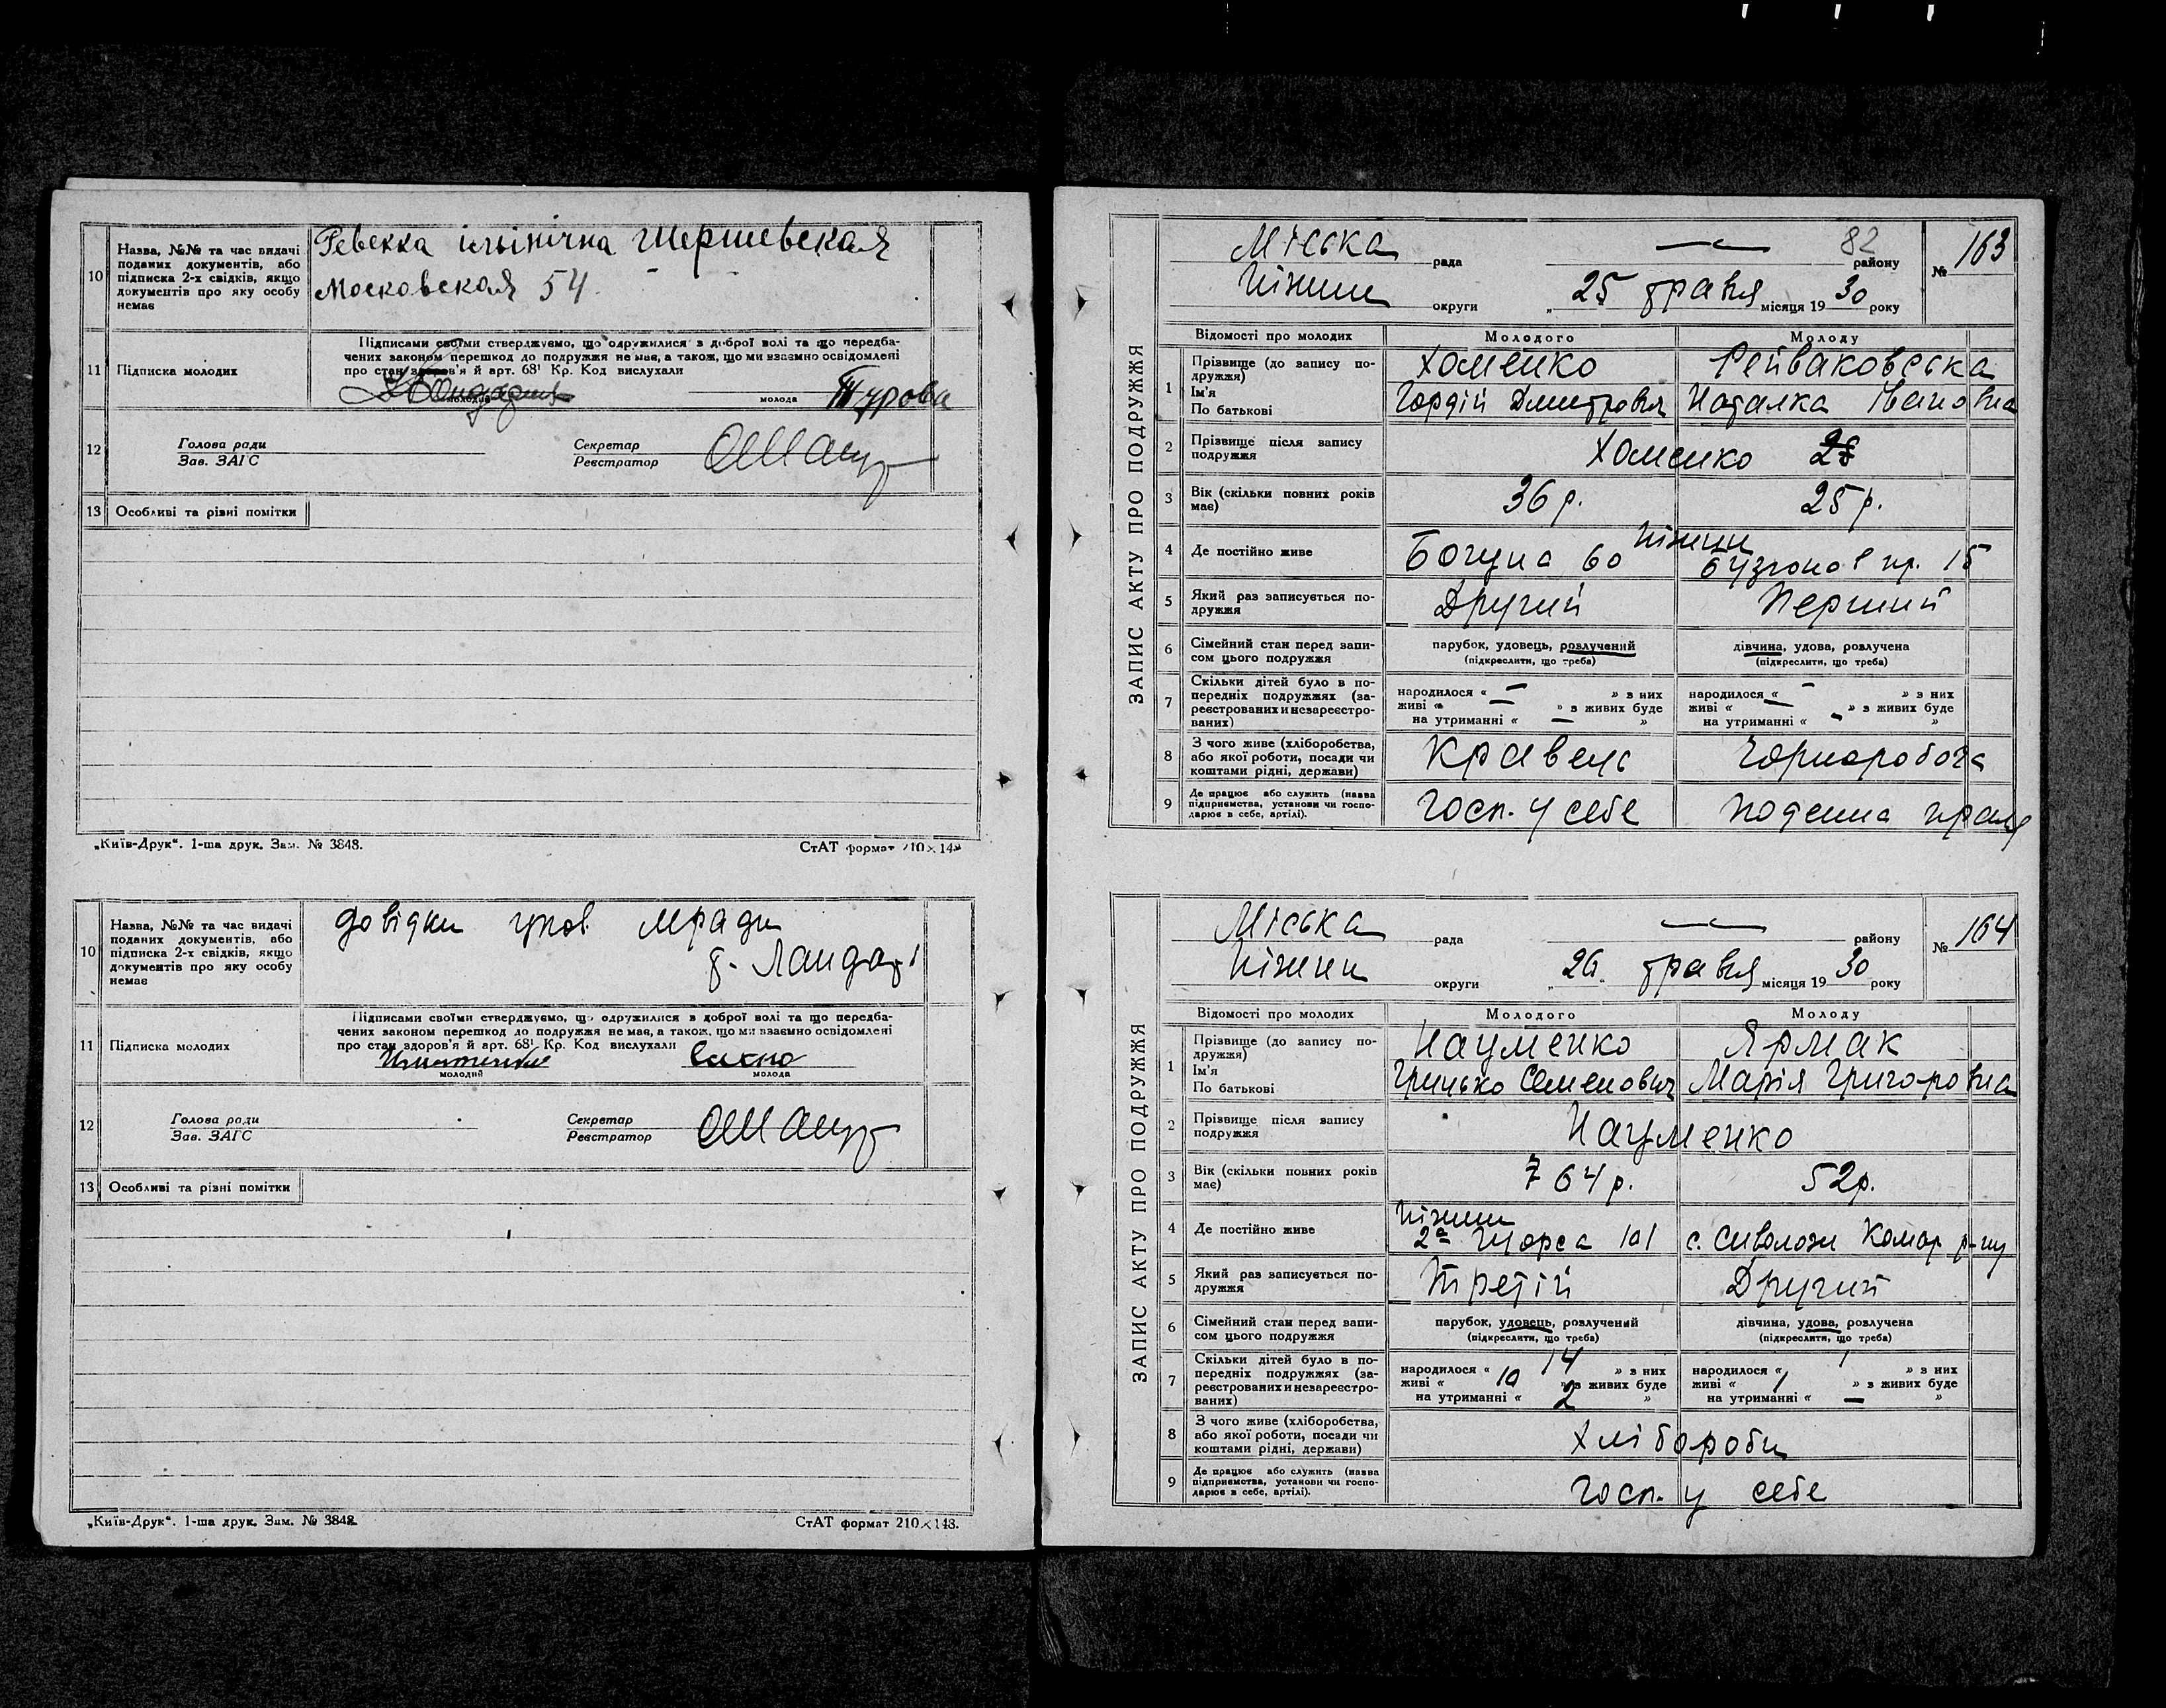 10
Назва, №№ та час видачі
поданих документів, або
підписка 2-х свідків, якщо
документів про яку особу
немає
Ревекка ильінічна Шершевская
Московская 54.
11 Підписка молодих
Підписами своїми стверджуємо, що одружилися з доброї волі та що передба-
чених законом перешкод до подружжя не має, а також, що ми взаємно освідомлені
про стан здоров'я й арт. 68¹ Кр. Код вислухали
молодий
молода Турова
12
Голова ради
Зав. ЗАГС
Секретар
Реєстратор
13 Особливі та різні помітки
„Київ-Друк“. 1-ша друк. Зам. № 3848.
СтАТ формат 210×148
10
Назва, №№ та час видачі
поданих документів, або
підписка 2-х свідків, якщо
документів про яку особу
немає
довідки упов. мради
11 Підписка молодих
Підписами своїми стверджуємо, що одружилися в доброї волі та що передба-
чених законом перешкод до подружжя не має, а також, що ми взаємно освідомлені
про стан здоров'я й арт. 68¹ Кр. Код вислухали
молодий
молода
12
Голова ради
Зав. ЗАГС
Секретар
Реєстратор
13 Особливі та різні помітки
„Київ-Друк“. 1-ша друк. Зам. № 3848.
СтАТ формат 210×148.
ЗАПИС АКТУ ПРО ПОДРУЖЖЯ
Міська рада — району 82
№ 163
Ніжин округи „25 травня місяця 1930 року
Відомості про молодих Молодого Молоду
1
Прізвище (до запису по-
дружжя)
Ім'я
По батькові
Хоменко
Гордій Дмитрович
Рейваковська
Наталка Івановна
2
Прізвище після запису
подружжя
Хоменко
3
Вік (скільки повних років
має)
36 р. 25 р.
4 Де постійно живе
Ніжин
Богуна 60
пр. 15
5
Який раз записується по-
дружжя
Другий Перший
6
Сімейний стан перед запи-
сом цього подружжя
парубок, удовець, розлучений
(підкреслити, що треба)
дівчина, удова, розлучена
(підкреслити, що треба)
7
Скільки дітей було в по-
передніх подружжях (за-
реєстрованих и незареєстро-
ваних)
народилося « — » з них
живі « — » з живих буде
на утриманні « — »
народилося « — » з них
живі « — » з живих буде
на утриманні « — »
8
З чого живе (хліборобства,
або якої роботи, посади чи
коштами рідні, держави)
Кравець Чорноробоча
9
Де працює або служить (назва
підприємства, установи чи госпо-
дарює в себе, артілі).
Госп. у себе Поденна праця
ЗАПИС АКТУ ПРО ПОДРУЖЖЯ
Міська рада — району
№ 164
Ніжин округи „26„ травня місяця 1930 року
Відомості про молодих Молодого Молоду
1
Прізвище (до запису по-
дружжя)
Ім'я
По батькові
Науменко
Грицько Семенович
Ярмак
Марія Григоровна
2
Прізвище після запису
подружжя
Науменко
3
Вік (скільки повних років
має)
64 р. 52 р.
4 Де постійно живе
Ніжин
2а Щорса 101
с. Сиволожи Комар. р-ну
5
Який раз записується по-
дружжя
Третій Другий
6
Сімейний стан перед запи-
сом цього подружжя
парубок, удовець, розлучений
(підкреслити, що треба)
дівчина, удова, розлучена
(підкреслити, що треба)
7
Скільки дітей було в по-
передніх подружжях (за-
реєстрованих и незареєстро-
ваних)
народилося « 14 » з них
живі « 10 » з живих буде
на утриманні « 2 »
народилося « 1 » з них
живі « 1 » з живих буде
на утриманні « — »
8
З чого живе (хліборобства,
або якої роботи, посади чи
коштами рідні, держави)
Хлібороби
9
Де працює або служить (назва
підприємства, установи чи госпо-
дарює в себе, артілі).
Госп. у себе